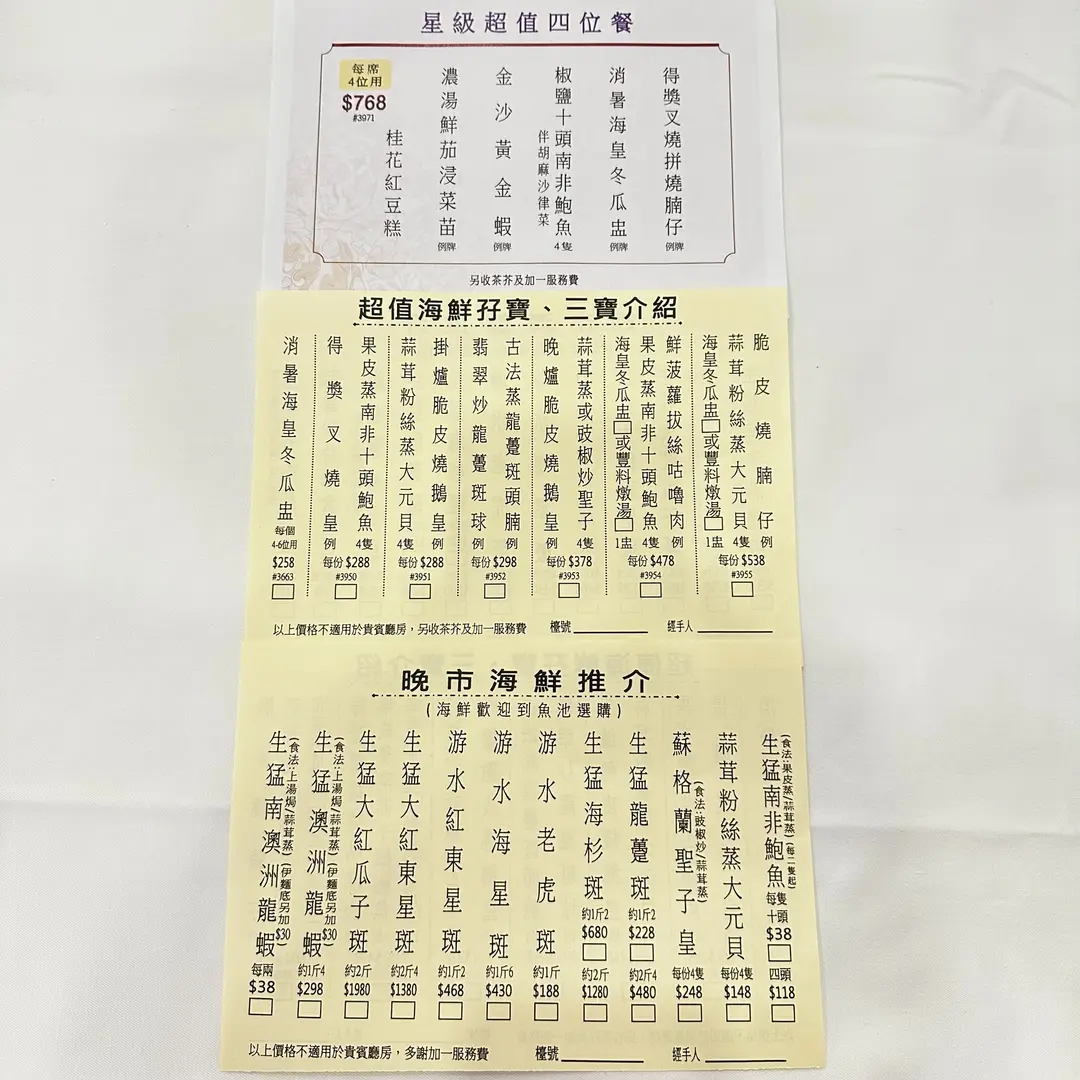 星級超值四位餐
得獎叉燒拼燒腩仔 例牌
消暑海皇冬瓜盅 例牌
椒鹽十頭南非鮑魚 4隻
伴胡麻沙律菜
金沙黃金蝦 例牌
濃湯鮮茄浸菜苗 例牌
桂花紅豆糕
每席
4位用
$768
#3971
另收茶芥及加一服務費
超值海鮮孖寶、三寶介紹
脆皮燒腩仔 例
蒜茸粉絲蒸大元貝 4隻
海皇冬瓜盅□或豐料燉湯□ 1盅
每份 $538
#3955
鮮菠蘿拔絲咕嚕肉 例
果皮蒸南非十頭鮑魚 4隻
海皇冬瓜盅□或豐料燉湯□ 1盅
每份 $478
#3954
蒜茸蒸或豉椒炒聖子 4隻
晚爐脆皮燒鵝皇 例
每份 $378
#3953
古法蒸龍躉斑頭腩 例
翡翠炒龍躉斑球 例
每份 $298
#3952
掛爐脆皮燒鵝皇 例
蒜茸粉絲蒸大元貝 4隻
每份 $288
#3951
果皮蒸南非十頭鮑魚 4隻
得獎叉燒皇 例
每份 $288
#3950
消暑海皇冬瓜盅
每個
4-6位用
$258
#3663
以上價格不適用於貴賓廳房，另收茶芥及加一服務費
檯號
經手人
晚市海鮮推介
(海鮮歡迎到魚池選購)
(食法:果皮蒸/蒜茸蒸)(每二隻起)
生猛南非鮑魚 每隻
十頭
$38
四頭
$118
蒜茸粉絲蒸大元貝
每份4隻
$148
蘇格蘭聖子皇
(食法:豉椒炒/蒜茸蒸)
每份4隻
$248
生猛龍躉斑
約1斤2
$228
約2斤4
$480
生猛海杉斑
約1斤2
$680
約2斤
$1280
游水老虎斑
約1斤
$188
游水海星斑
約1斤6
$430
游水紅東星斑
約1斤2
$468
生猛大紅東星斑
約2斤4
$1380
生猛大紅瓜子斑
約2斤
$1980
(食法:上湯焗/蒜茸蒸)(伊麵底另加$30)
生猛澳洲龍蝦
約1斤4
$298
(食法:上湯焗/蒜茸蒸)(伊麵底另加$30)
生猛南澳洲龍蝦
每兩
$38
以上價格不適用於貴賓廳房，多謝加一服務費
檯號
經手人